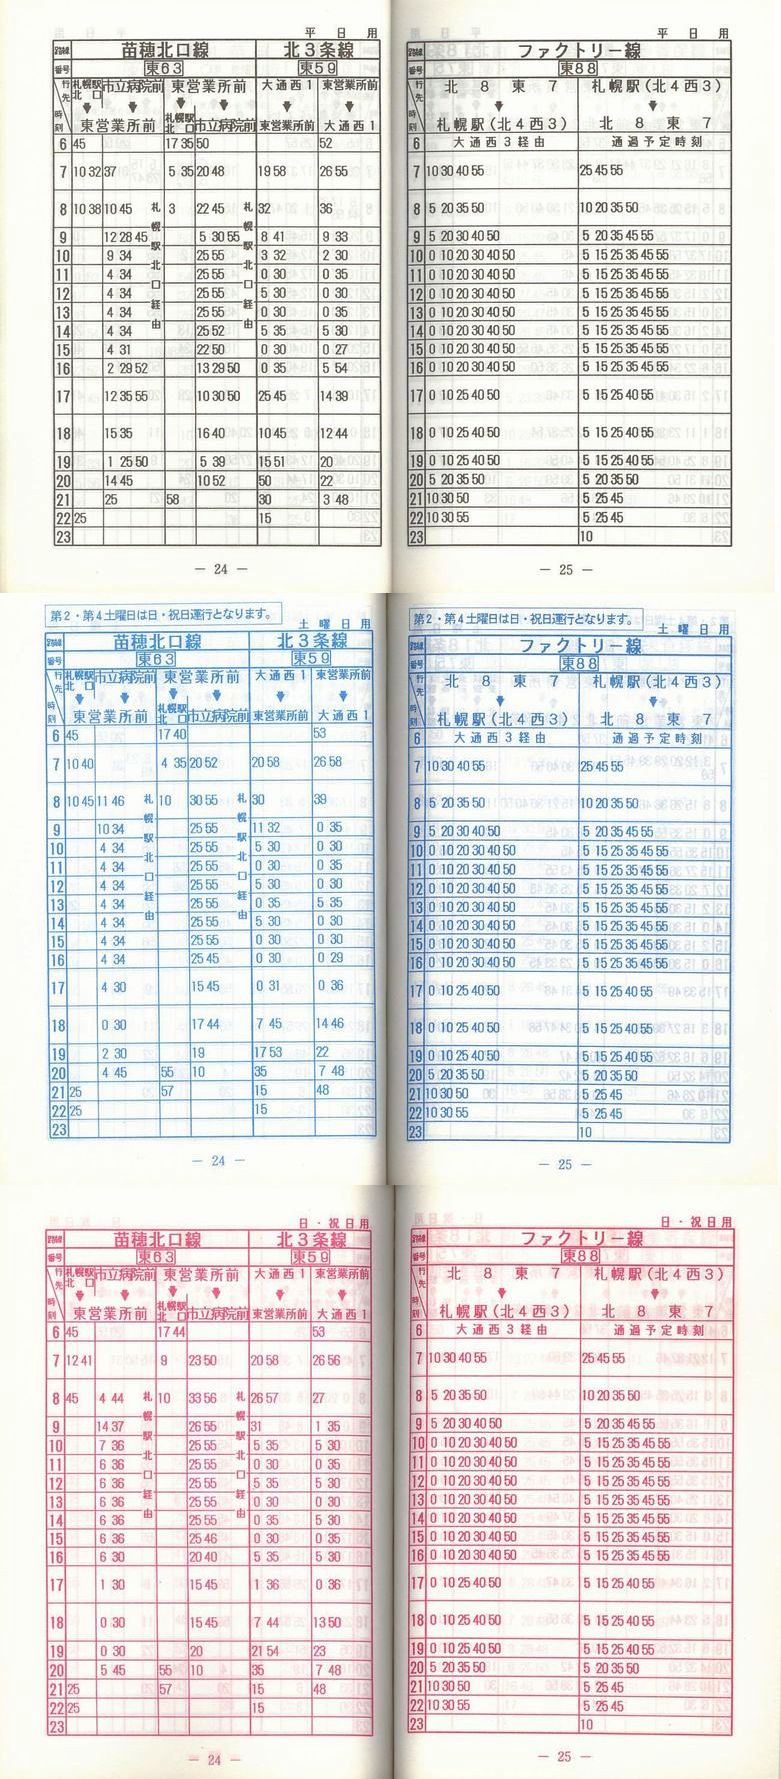 平日用
路線 苗穂北口線 北3条線
番号 東63 東59
行先 札幌駅北口 市立病院前 東営業所前 大通西1 東営業所前
時刻 東営業所前 札幌駅北口 市立病院前 東営業所前 大通西1
札幌駅北口経由 札幌駅北口経由
6 45 17 35 50 52
7 10 32 37 5 35 20 48 19 58 26 55
8 10 38 10 45 3 22 45 32 36
9 12 28 45 5 30 55 8 41 9 33
10 9 34 25 55 3 32 2 30
11 4 34 25 55 0 30 0 35
12 4 34 25 55 5 30 0 30
13 4 34 25 55 0 30 0 35
14 4 34 25 52 5 35 5 30
15 4 31 22 50 0 30 0 27
16 2 29 52 13 29 50 0 35 5 54
17 12 35 55 10 30 50 25 45 14 39
18 15 35 16 40 10 45 12 44
19 1 25 50 5 39 15 51 20
20 14 45 10 52 50 22
21 25 58 30 3 48
22 25 15
23
― 24 ―
平日用
路線 ファクトリー線
番号 東88
行先 北8東7 札幌駅(北4西3)
時刻 札幌駅(北4西3) 北8東7
6 大通西3経由 通過予定時刻
7 10 30 40 55 25 45 55
8 5 20 35 50 10 20 35 50
9 5 20 30 40 50 5 20 35 45 55
10 0 10 20 30 40 50 5 15 25 35 45 55
11 0 10 20 30 40 50 5 15 25 35 45 55
12 0 10 20 30 40 50 5 15 25 35 45 55
13 0 10 20 30 40 50 5 15 25 35 45 55
14 0 10 20 30 40 50 5 15 25 35 45 55
15 0 10 20 30 40 50 5 15 25 35 45 55
16 0 10 20 30 40 50 5 15 25 35 45 55
17 0 10 25 40 50 5 15 25 40 55
18 0 10 25 40 50 5 15 25 40 55
19 0 10 25 40 50 5 15 25 40 55
20 5 20 35 50 5 20 35 50
21 10 30 50 5 25 45
22 10 30 55 5 25 45
23 10
― 25 ―
第2・第4土曜日は日・祝日運行となります。
土曜日用
路線 苗穂北口線 北3条線
番号 東63 東59
行先 札幌駅北口 市立病院前 東営業所前 大通西1 東営業所前
時刻 東営業所前 札幌駅北口 市立病院前 東営業所前 大通西1
札幌駅北口経由 札幌駅北口経由
6 45 17 40 53
7 10 40 4 35 20 52 20 58 26 58
8 10 45 11 46 10 30 55 30 39
9 10 34 25 55 11 32 0 35
10 4 34 25 55 5 30 0 30
11 4 34 25 55 0 30 0 35
12 4 34 25 55 5 30 0 30
13 4 34 25 55 0 35 5 35
14 4 34 25 55 5 30 0 30
15 4 34 25 55 0 30 0 30
16 4 34 25 45 0 30 0 29
17 4 30 15 45 0 31 0 36
18 0 30 17 44 7 45 14 46
19 2 30 19 17 53 22
20 4 45 55 10 35 7 48
21 25 57 15 48
22 25 15
23
― 24 ―
第2・第4土曜日は日・祝日運行となります。
土曜日用
路線 ファクトリー線
番号 東88
行先 北8東7 札幌駅(北4西3)
時刻 札幌駅(北4西3) 北8東7
6 大通西3経由 通過予定時刻
7 10 30 40 55 25 45 55
8 5 20 35 50 10 20 35 50
9 5 20 30 40 50 5 20 35 45 55
10 0 10 20 30 40 50 5 15 25 35 45 55
11 0 10 20 30 40 50 5 15 25 35 45 55
12 0 10 20 30 40 50 5 15 25 35 45 55
13 0 10 20 30 40 50 5 15 25 35 45 55
14 0 10 20 30 40 50 5 15 25 35 45 55
15 0 10 20 30 40 50 5 15 25 35 45 55
16 0 10 20 30 40 50 5 15 25 35 45 55
17 0 10 25 40 50 5 15 25 40 55
18 0 10 25 40 50 5 15 25 40 55
19 0 10 25 40 50 5 15 25 40 55
20 5 20 35 50 5 20 35 50
21 10 30 50 5 25 45
22 10 30 55 5 25 45
23 10
― 25 ―
日・祝日用
路線 苗穂北口線 北3条線
番号 東63 東59
行先 札幌駅北口 市立病院前 東営業所前 大通西1 東営業所前
時刻 東営業所前 札幌駅北口 市立病院前 東営業所前 大通西1
札幌駅北口経由 札幌駅北口経由
6 45 17 44 53
7 12 41 9 23 50 20 58 26 56
8 45 4 44 10 33 56 26 57 27
9 14 37 26 55 31 1 35
10 7 36 25 55 5 35 5 30
11 6 36 25 55 0 30 0 35
12 6 36 25 55 5 35 5 30
13 6 36 25 55 0 30 0 35
14 6 36 25 55 0 30 0 30
15 6 36 25 46 0 30 0 35
16 6 30 20 40 5 35 5 30
17 1 30 15 45 1 36 0 36
18 0 30 15 45 7 44 13 50
19 0 30 20 21 54 23
20 5 45 55 10 35 7 48
21 25 57 15 48
22 25 15
23
― 24 ―
日・祝日用
路線 ファクトリー線
番号 東88
行先 北8東7 札幌駅(北4西3)
時刻 札幌駅(北4西3) 北8東7
6 大通西3経由 通過予定時刻
7 10 30 40 55 25 45 55
8 5 20 35 50 10 20 35 50
9 5 20 30 40 50 5 20 35 45 55
10 0 10 20 30 40 50 5 15 25 35 45 55
11 0 10 20 30 40 50 5 15 25 35 45 55
12 0 10 20 30 40 50 5 15 25 35 45 55
13 0 10 20 30 40 50 5 15 25 35 45 55
14 0 10 20 30 40 50 5 15 25 35 45 55
15 0 10 20 30 40 50 5 15 25 35 45 55
16 0 10 20 30 40 50 5 15 25 35 45 55
17 0 10 25 40 50 5 15 25 40 55
18 0 10 25 40 50 5 15 25 40 55
19 0 10 25 40 50 5 15 25 40 55
20 5 20 35 50 5 20 35 50
21 10 30 50 5 25 45
22 10 30 55 5 25 45
23 10
― 25 ―